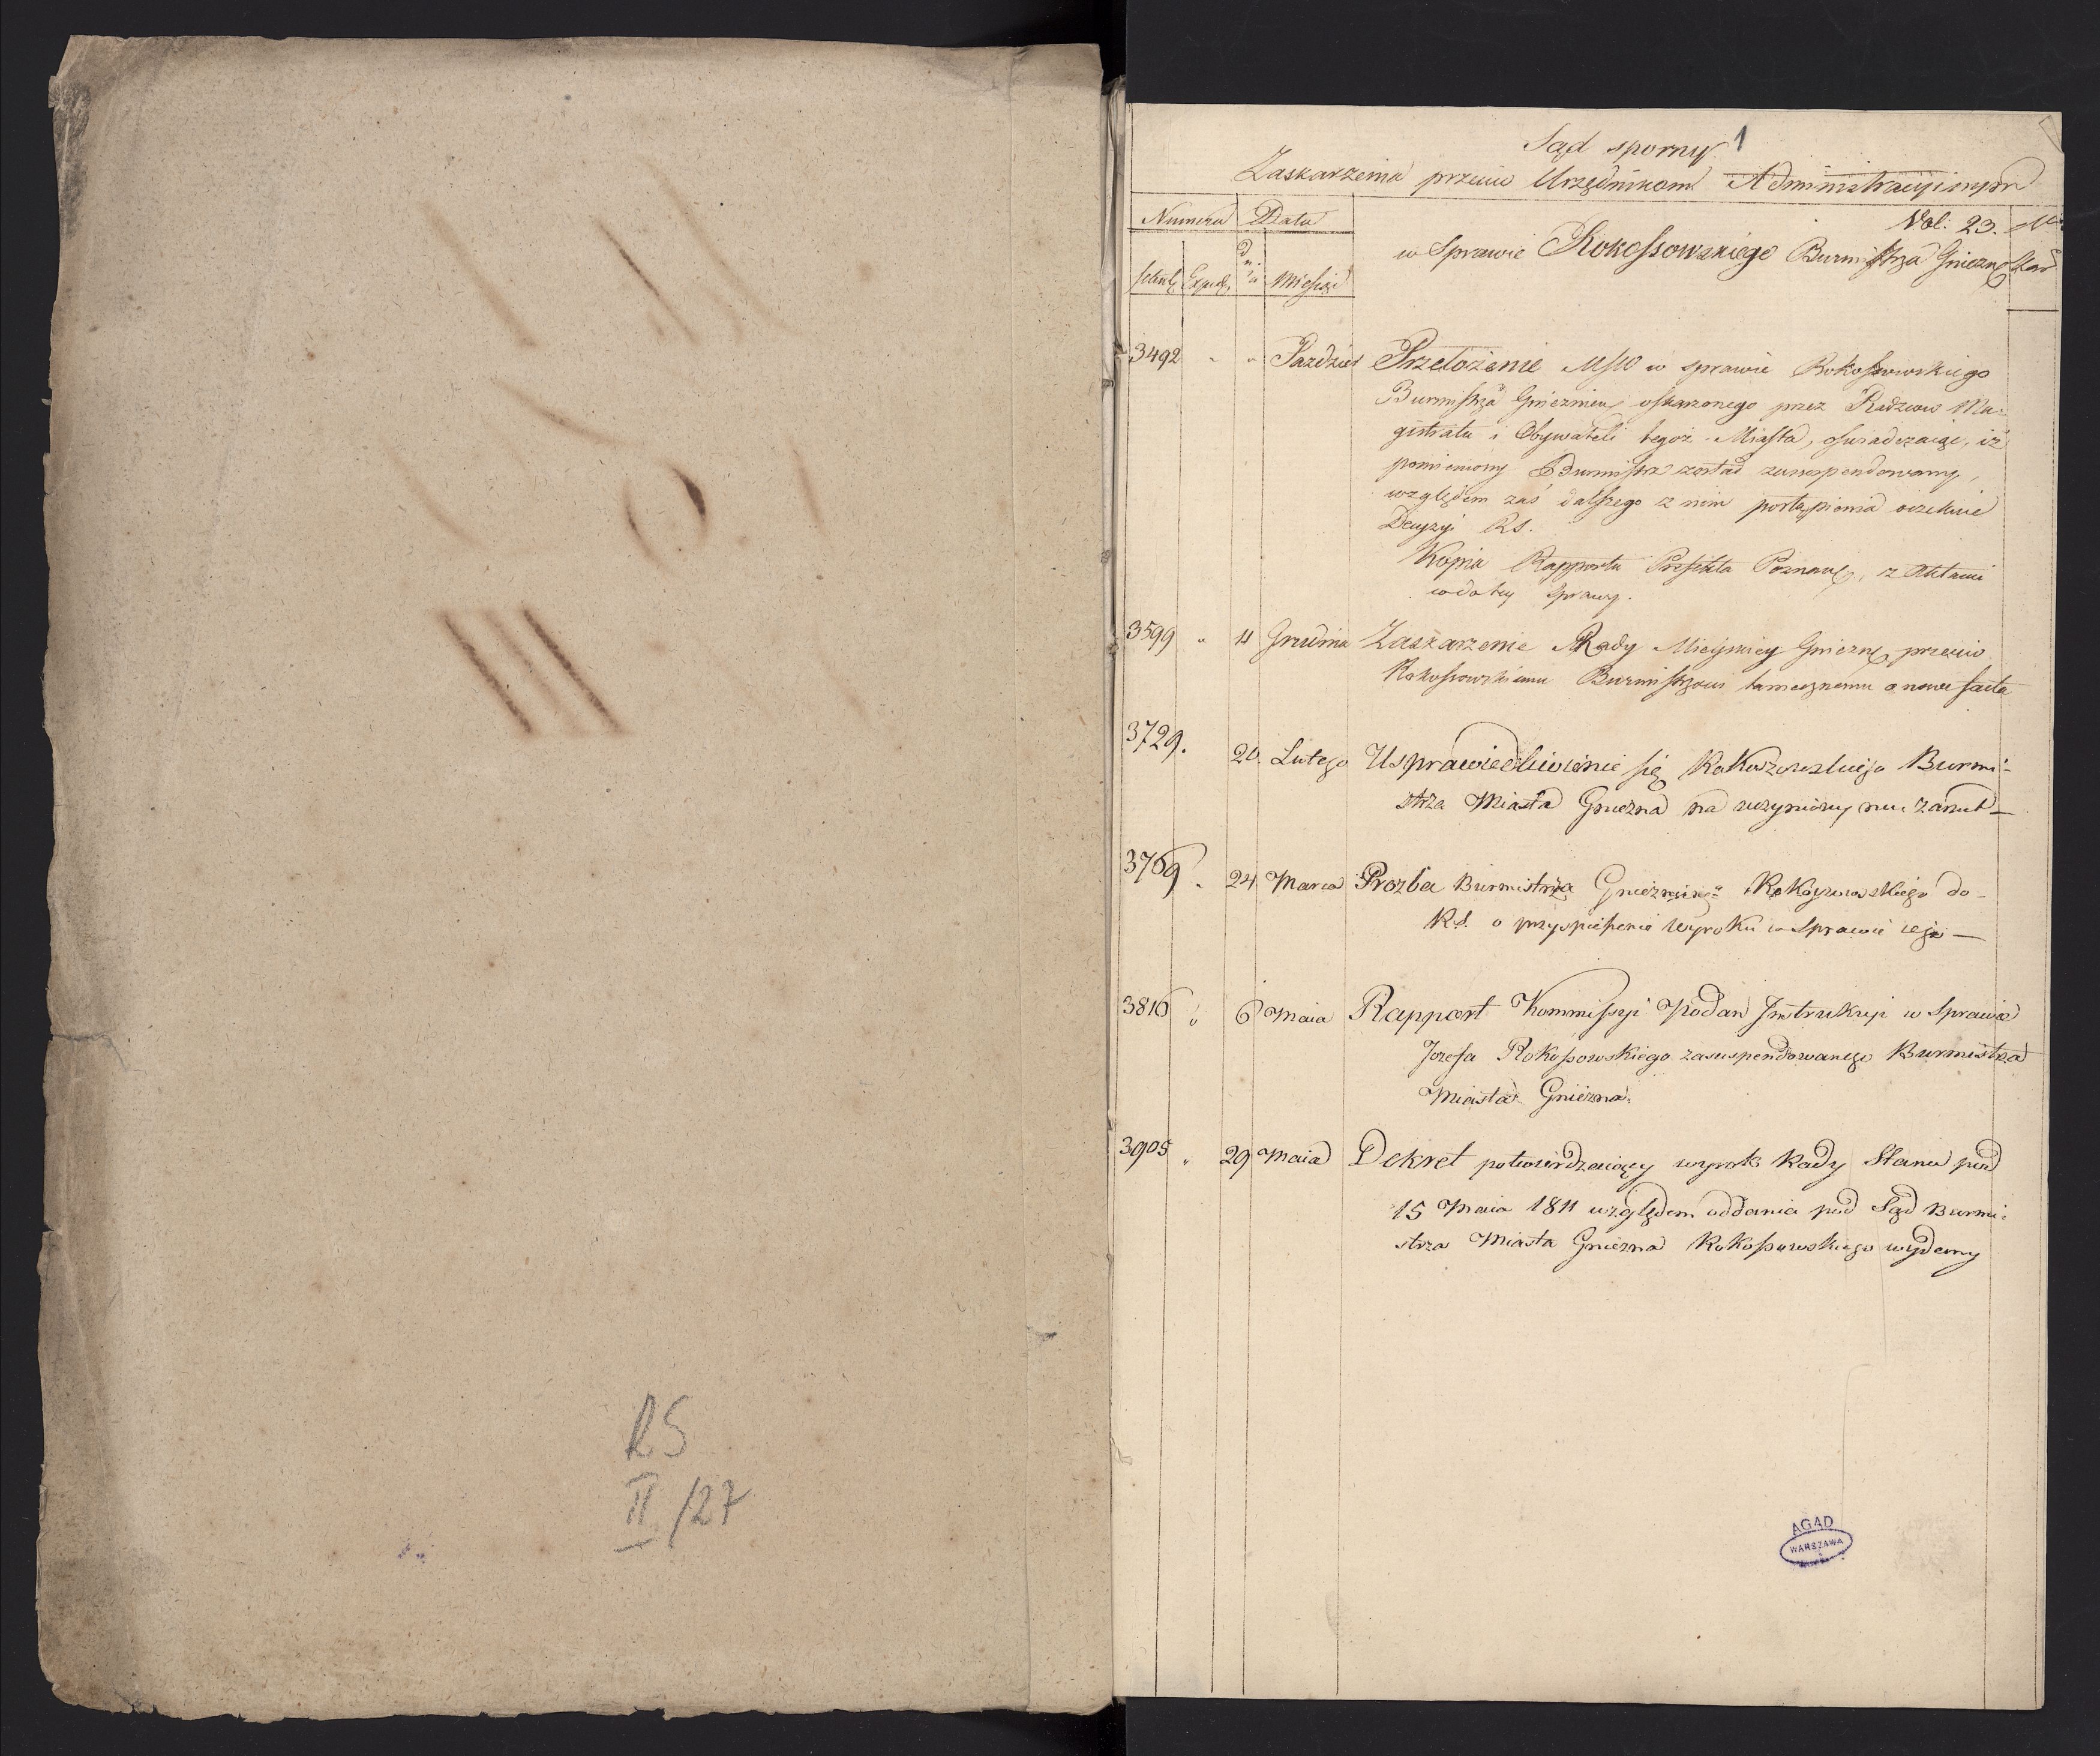 RS
II/27
Sąd sporny 1
Zaskarżenia przeciw Urzędnikom Administracyinym
Numera Data Vol: 23.
w Sprawie Rokossowskiego Burmistrza Gniezn
Exped. Dnia Miesiąc
3492 " " Pazdzier Przełożenie MSW w sprawie Rokossowskiego
Burmistrza Gniezniens oskarżonego przez Radzców Ma:
gistratu i Obywateli tegoż Miasta, oświadczaiąc, iż
pomieniony Burmistrz został zasuspendowany,
względem zaś dalszego z nim postąpienia oczekuie
Decyzyi RS.
Kopia Rapportu Prefekta Poznans, z Aktami
do tey Sprawy.
3599 " 11 Grudnia Zaskarżenie Rady Mieyskiey Gniezn przeciw
Rokossowskiemu Burmistrzowi tamecznemu o nowe facta
3729. 20. Lutego Usprawiedliwienie się Rokoszowskiego Burmi-
strza Miasta Gniezna na uczyniony mu zarzut –
3769 " 24 Marca Prozba Burmistrza Gniezniens Rokoszowskiego do-
RS. o przyspieszenie Wyroku w Sprawie iego —
3816 " 6 Maia Rapport Kommissyi Podań Instrukcyi w Sprawie
Jozefa Rokossowskiego zasuspendowanego Burmistrza
Miasta Gniezna.
3905 " 29 Maia Dekret potwierdzaiący wyrok Rady Stanu pod
15 Maia 1811 względem oddania pod Sąd Burmi:
strza Miasta Gniezna Rokossowskiego wydany
AGAD
WARSZAWA